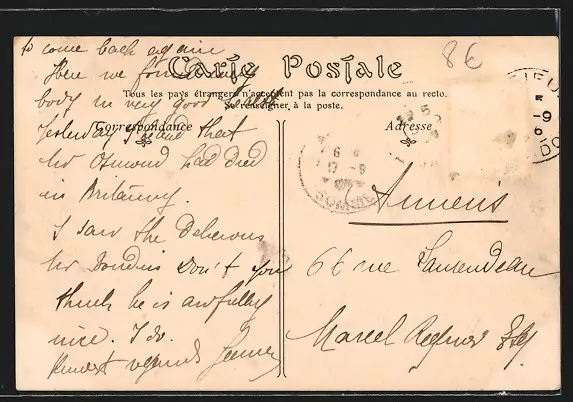 to come back again
Here we found every
body in very good health
Yesterday I found that
Mr Osmond had died
in Brittany.
I saw the Delicious
Mr Dondins Don't you
think he is awfully
nice. I do.
Kindest regards
8€
Carte Postale
Tous les pays étrangers n'acceptent pas la correspondance au recto.
Se renseigner à la poste.
Correspondance
Adresse
SOMME
Amiens
66 rue Laurendeau
Marcel Esq